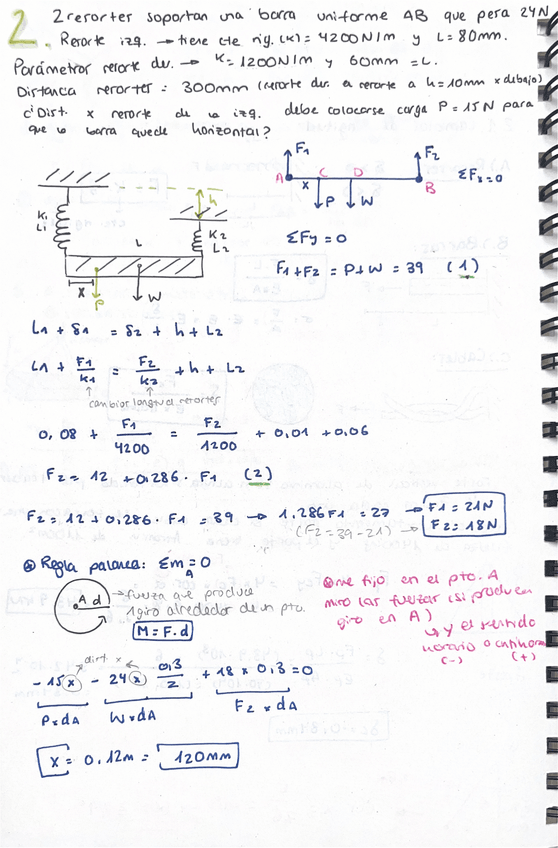 2.
2 resortes soportan una barra uniforme AB que pesa 24N
Resorte izq. → tiene cte rig. (K) = 4200N/m y L = 80mm.
Parámetros resorte der. → K = 1200N/m y 60mm = L.
Distancia resortes = 300mm (resorte der. a resorte a h = 10mm x debajo)
c' Dist. x resorte de la izq. debe colocarse carga P = 15N para
que la barra quede horizontal?
h
K1
L1
K2
L2
L
x
P
W
F1
F2
A
C
D
B
x
P
W
ΣFx = 0
ΣFy = 0
F1 + F2 = P + W = 39 (1)
L1 + δ1 = δ2 + h + L2
L1 + F1/K1 = F2/K2 + h + L2
cambios longitud resortes
0,08 + F1/4200 = F2/1200 + 0,01 + 0,06
F2 = 12 + 0,286 · F1 (2)
F2 = 12 + 0,286 · F1 = 39 → 1,286F1 = 27 → F1 = 21N
(F2 = 39 - 21) → F2 = 18N
Regla palanca: ΣmA = 0
A d
→ fuerza que produce
1 giro alrededor de un pto.
M = F.d
me fijo en el pto. A
miro las fuerzas (si producen
giro en A)
↳ y el sentido
horario o antihora
(-) (+)
dist. x
- 15x - 24x 0,3/2 + 18 x 0,3 = 0
P x dA W x dA F2 x dA
X = 0,12m = 120mm